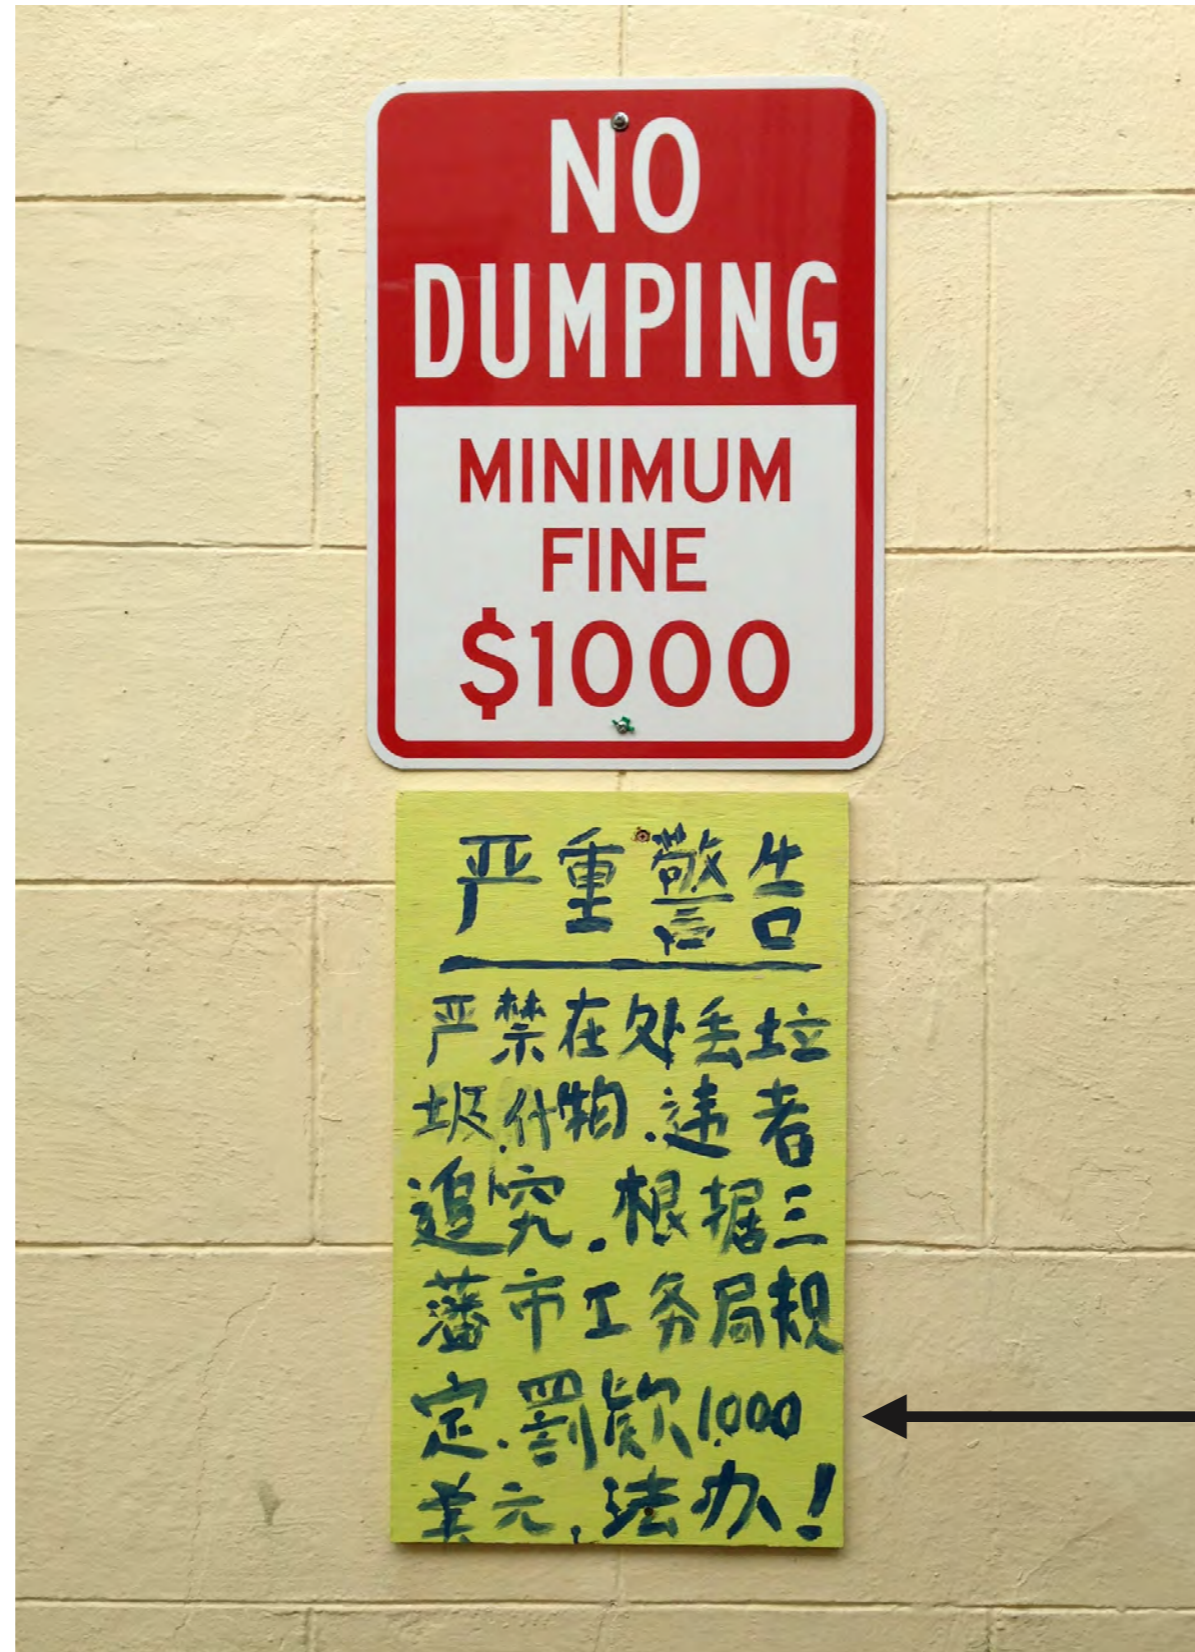 NO
DUMPING
MINIMUM
FINE
$1000
严重警告
严禁在处丢垃
圾.什物.违者
追究.根据三
藩市工务局规
定.罰款1.000
美元.法办!